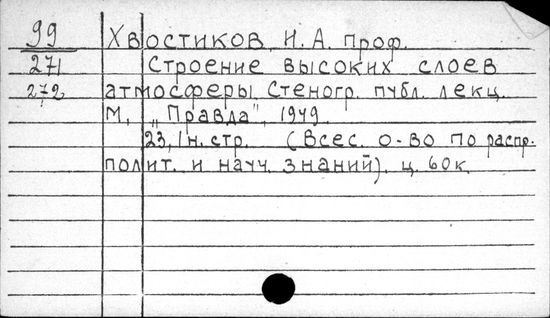 99 Хвостиков, И. А. проф.
271 Строение высоких слоев
272 атмосферы. Стеногр. публ. лекц.
М., „Правда", 1949.
23, 1 н. стр. (Всес. о-во по распр.
полит. и науч. знаний). ц. 60 к.